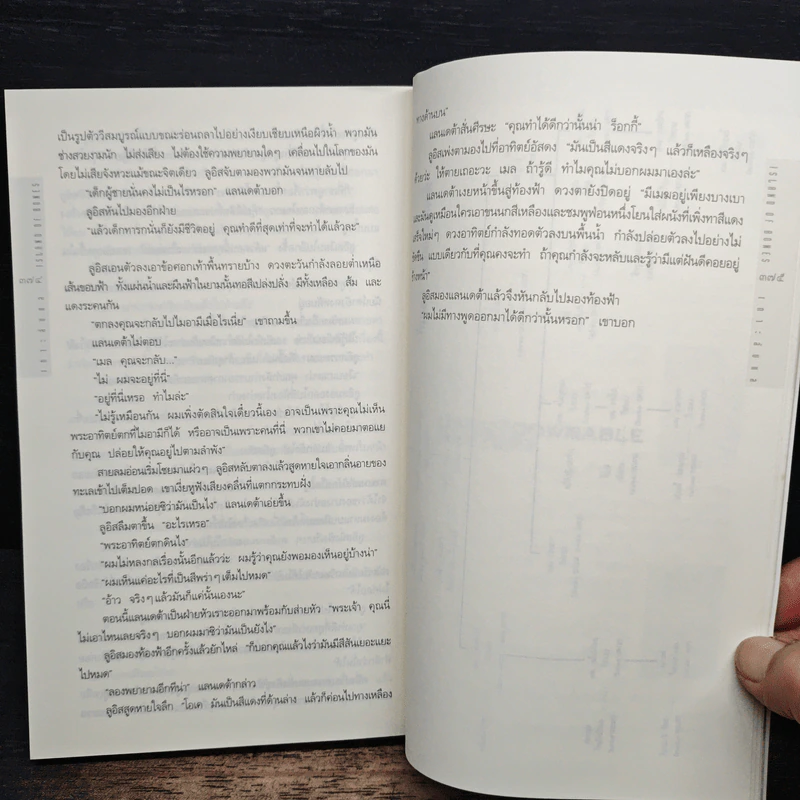 เป็นรูปตัววีสมบูรณ์แบบขณะร่อนถลาไปอย่างเงียบเชียบเหนือผิวน้ำ พวกมัน
ช่างสวยงามนัก ไม่ส่งเสียง ไม่ต้องใช้ความพยายามใดๆ เคลื่อนไปในโลกของมัน
โดยไม่เสียจังหวะแม้ขณะจิตเดียว ลูอิสจับตามองพวกมันจนหายลับไป
"เด็กผู้ชายนั่นคงไม่เป็นไรหรอก" แลนเดต้าบอก
ลูอิสหันไปมองอีกฝ่าย
"แล้วเด็กทารกนั่นก็ยังมีชีวิตอยู่ คุณทำดีที่สุดเท่าที่จะทำได้แล้วละ"
ลูอิสเอนตัวลงเอาข้อศอกเท้าพื้นทรายบ้าง ดวงตะวันกำลังลอยต่ำเหนือ
เส้นขอบฟ้า ทั้งแผ่นน้ำและผืนฟ้าในยามนั้นทอสีเปล่งปลั่ง มีทั้งเหลือง ส้ม และ
แดงระคนกัน
"ตกลงคุณจะกลับไปไมอามีเมื่อไรเนี่ย" เขาถามขึ้น
แลนเดต้าไม่ตอบ
"เมล คุณจะกลับ..."
"ไม่ ผมจะอยู่ที่นี่"
"อยู่ที่นี่เหรอ ทำไมล่ะ"
"ไม่รู้เหมือนกัน ผมเพิ่งตัดสินใจเดี๋ยวนี้เอง อาจเป็นเพราะคุณไม่เห็น
พระอาทิตย์ตกที่ไมอามีก็ได้ หรืออาจเป็นเพราะคนที่นี่ พวกเขาไม่คอยมาตอแย
กับคุณ ปล่อยให้คุณอยู่ไปตามลำพัง"
สายลมอ่อนเริ่มโชยมาแผ่วๆ ลูอิสหลับตาลงแล้วสูดหายใจเอากลิ่นอายของ
ทะเลเข้าไปเต็มปอด เขาเงี่ยหูฟังเสียงคลื่นที่แตกกระทบฝั่ง
"บอกผมหน่อยซิว่ามันเป็นไง" แลนเดต้าเอ่ยขึ้น
ลูอิสลืมตาขึ้น "อะไรเหรอ"
"พระอาทิตย์ตกดินไง"
"ผมไม่หลงกลเรื่องนั้นอีกแล้วว่ะ ผมรู้ว่าคุณยังพอมองเห็นอยู่บ้างน่า"
"ผมเห็นแค่อะไรที่เป็นสีพร่าๆ เต็มไปหมด"
"อ้าว จริงๆ แล้วมันก็แค่นั้นเองนะ"
ตอนนี้แลนเดต้าเป็นฝ่ายหัวเราะออกมาพร้อมกับส่ายหัว "พระเจ้า คุณนี่
ไม่เอาไหนเลยจริงๆ บอกผมมาซิว่ามันเป็นยังไง"
ลูอิสมองท้องฟ้าอีกครั้งแล้วยักไหล่ "ก็บอกคุณแล้วไงว่ามันมีสีสันเยอะแยะ
ไปหมด"
"ลองพยายามอีกทีน่า" แลนเดต้ากล่าว
ลูอิสสูดหายใจลึก "โอเค มันเป็นสีแดงที่ด้านล่าง แล้วก็ค่อนไปทางเหลือง
๓๗๔
ทางด้านบน"
แลนเดต้าสั่นศีรษะ "คุณทำได้ดีกว่านั้นน่า ร็อกกี้"
ลูอิสเพ่งตามองไปที่อาทิตย์อัสดง "มันเป็นสีแดงจริงๆ แล้วก็เหลืองจริงๆ
ด้วยว่ะ ให้ตายเถอะวะ เมล ถ้ารู้ดี ทำไมคุณไม่บอกผมมาเองล่ะ"
แลนเดต้าเงยหน้าขึ้นสู่ท้องฟ้า ดวงตายังปิดอยู่ "มีเมฆอยู่เพียงบางเบา
และมันดูเหมือนใครเอาขนนกสีเหลืองและชมพูฟ่อนหนึ่งโยนใส่ผนังที่เพิ่งทาสีแดง
เสร็จใหม่ๆ ดวงอาทิตย์กำลังทอดตัวลงบนพื้นน้ำ กำลังปล่อยตัวลงไปอย่างไม่
ขัดขืน แบบเดียวกับที่คุณคงจะทำ ถ้าคุณกำลังจะหลับและรู้ว่ามีแต่ฝันดีคอยอยู่
ข้างหน้า"
ลูอิสมองแลนเดต้าแล้วจึงหันกลับไปมองท้องฟ้า
"ผมไม่มีทางพูดออกมาได้ดีกว่านั้นหรอก" เขาบอก
๓๗๕